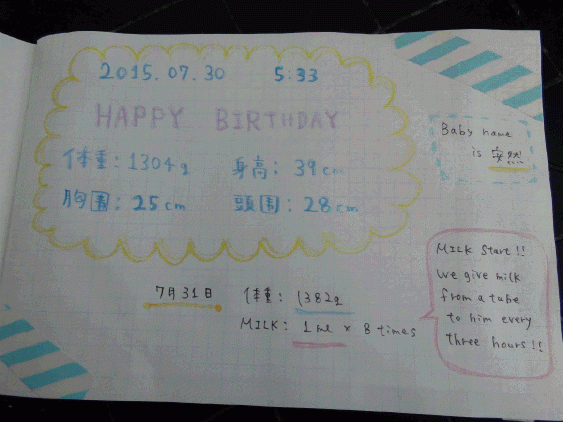 2015.07.30 5:33
HAPPY BIRTHDAY
体重:1304g 身高:39cm
胸囲:25cm 頭囲:28cm
Baby name
is 安然
7月31日 体重:1382g
MILK: 1ml × 8 times
MILK Start!!
We give milk
from a tube
to him every
three hours!!